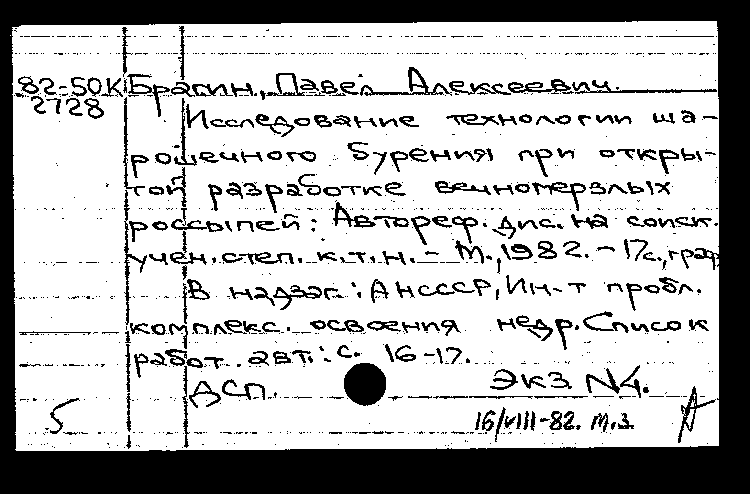 82-50К Брагин, Павел Алексеевич.
2728
Исследование технологии ша-
рошечного бурения при откры-
той разработке вечномерзлых
россыпей: Автореф. дис. на соиск.
учен. степ. к.т.н. - М., 1982. - 17с., граф
В надзаг.: АН СССР, Ин-т пробл.
комплекс. освоения недр. Список
работ авт.: с. 16-17.
ДСП. Экз. N4.
5 16/VIII-82. т.з.